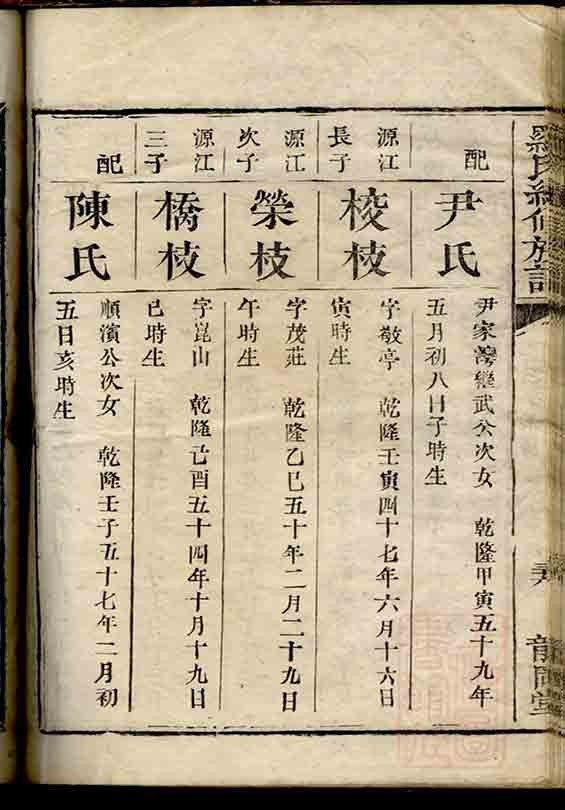 羅氏續修族譜
配
尹氏
尹家灣巒武公次女 乾隆甲寅五十九年
五月初八日子時生
源江
長子
梭枝
字敬亭 乾隆壬寅四十七年六月十六日
寅時生
源江
次子
榮枝
字茂莊 乾隆乙巳五十年二月二十九日
午時生
源江
三子
橋枝
字崑山 乾隆己酉五十四年十月十九日
巳時生
配
陳氏
順濱公次女 乾隆壬子五十七年二月初
五日亥時生